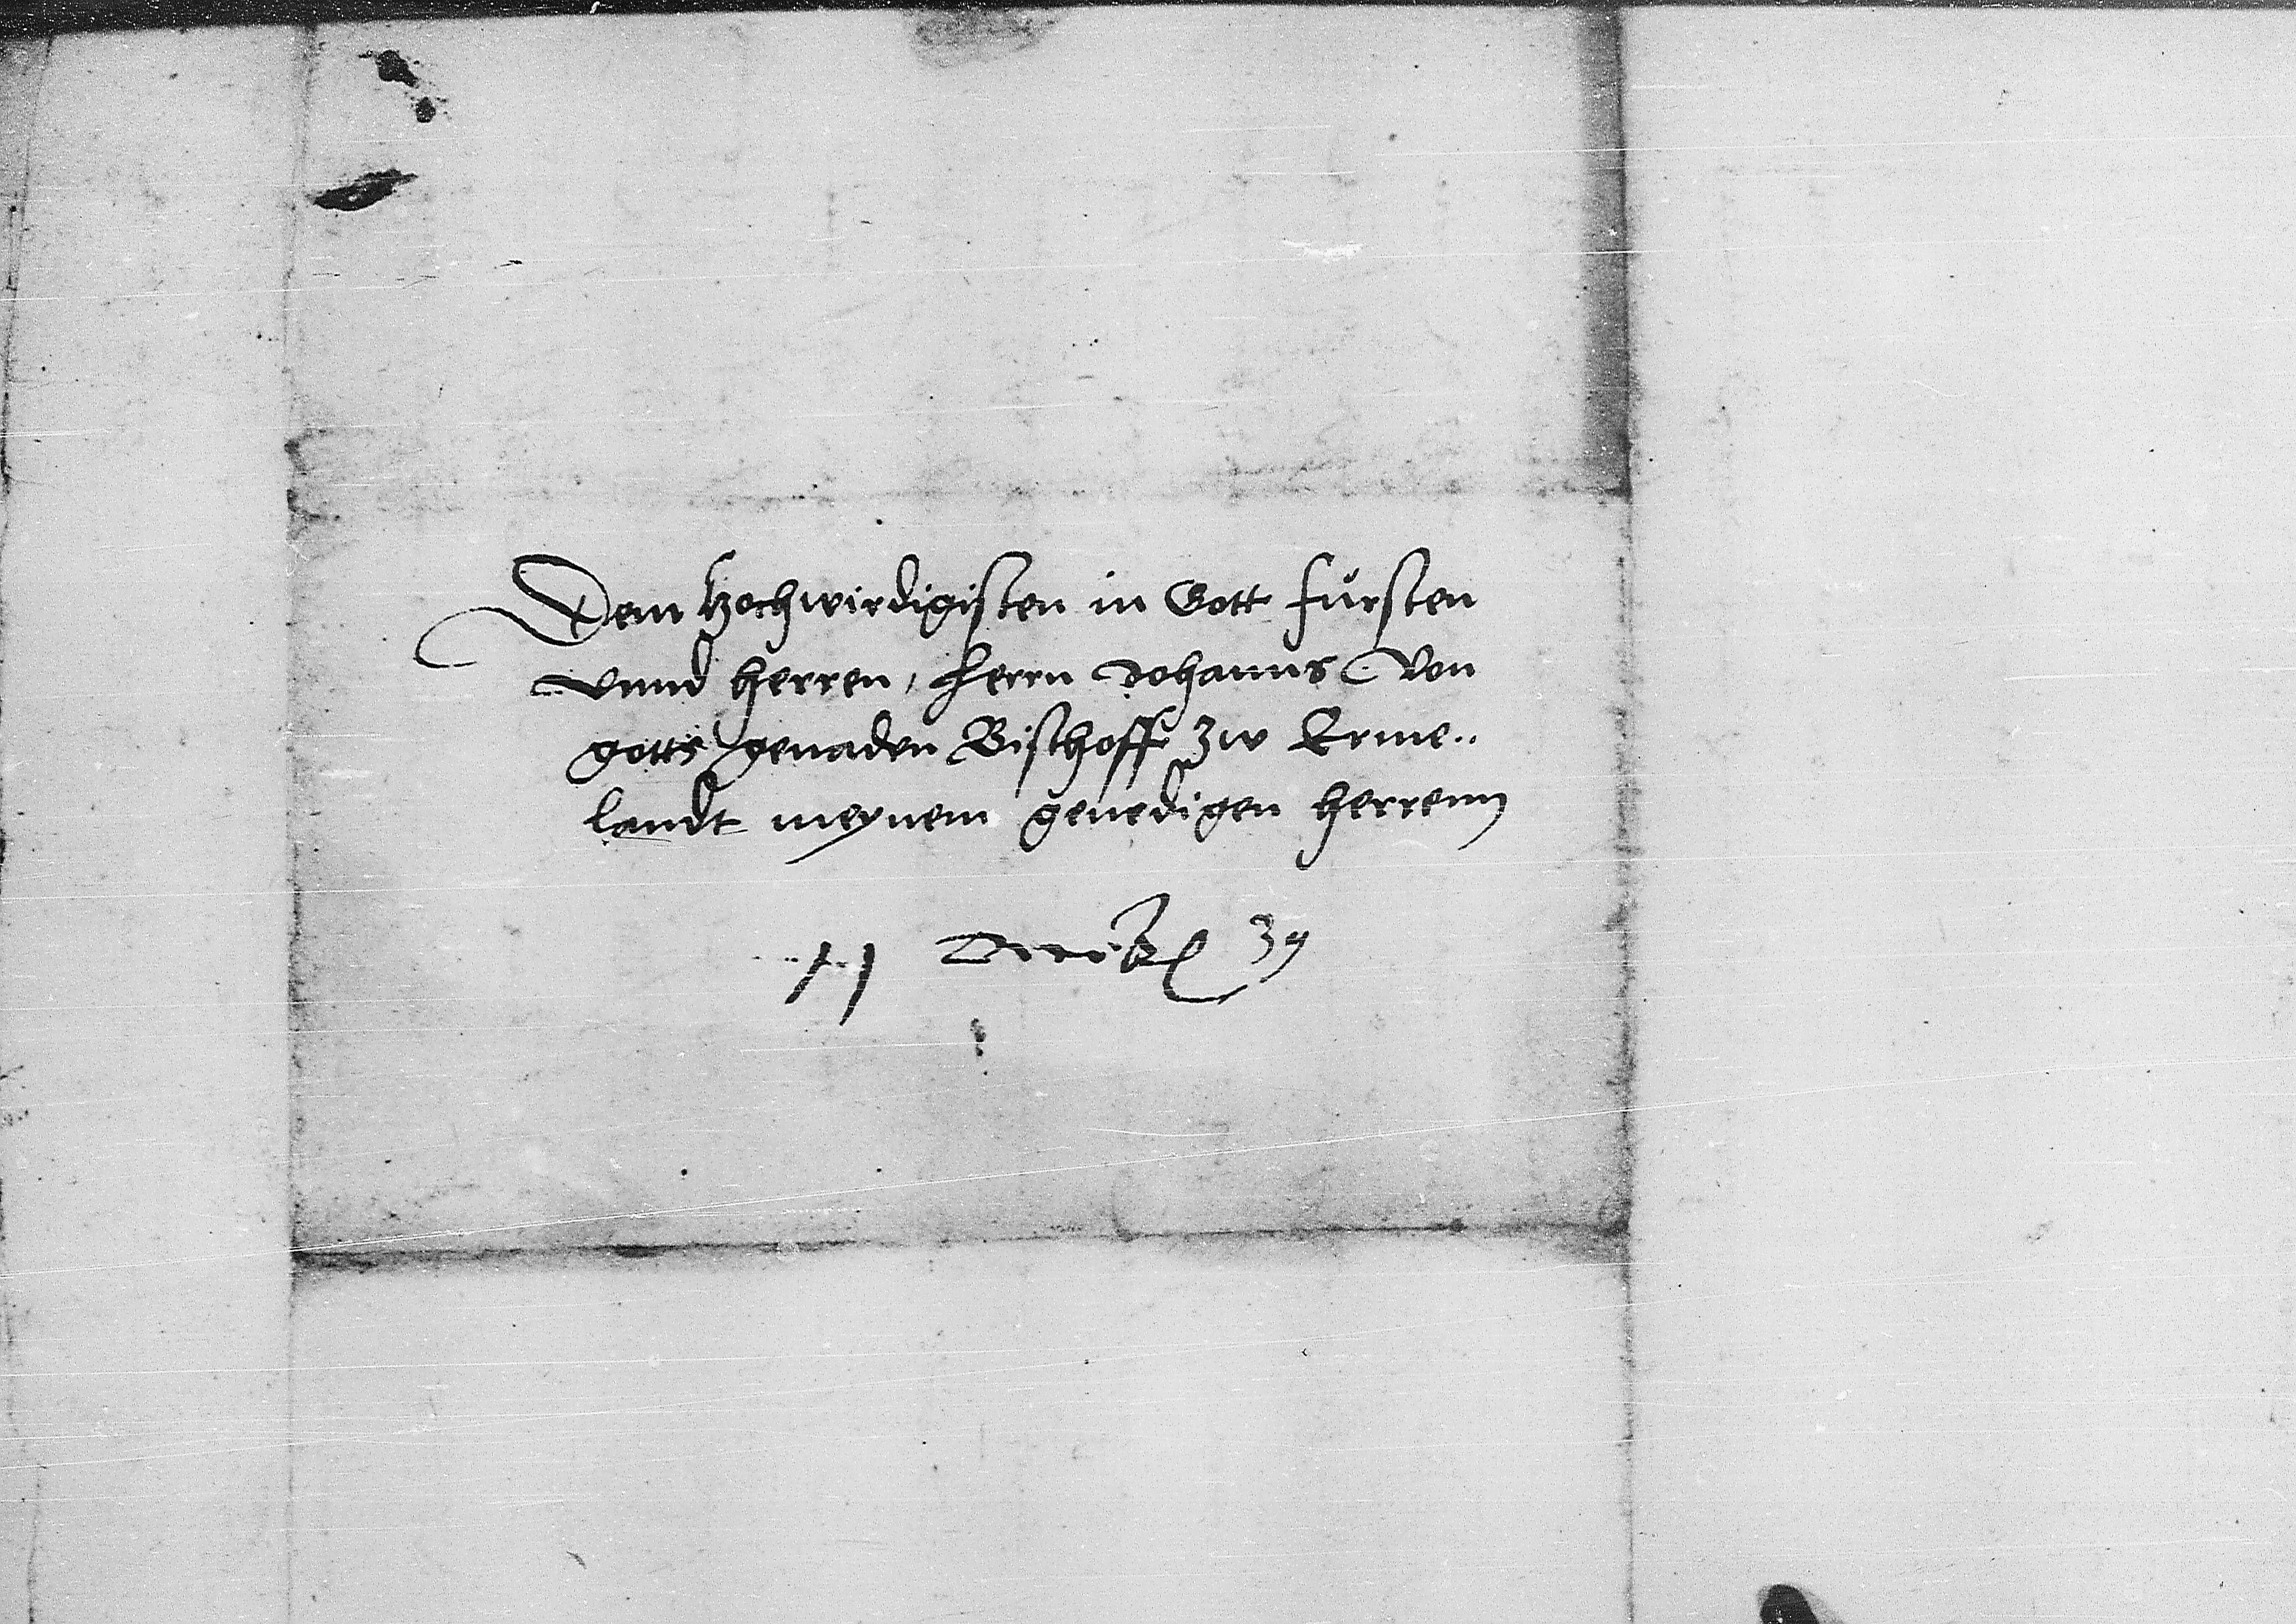 Dem Hochwirdigisten in Gott fürsten
vnnd herren, herrn Johanns von
gotts genaden Bischoff zw Erme..
landt meynem genedigen herrenn
39